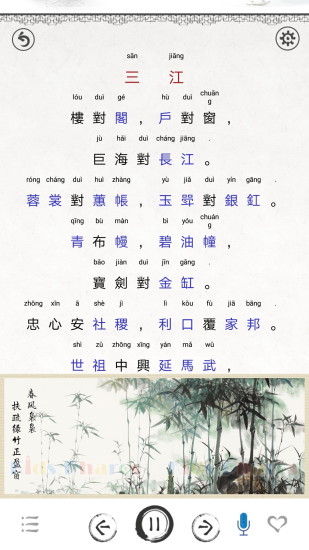 sān jiāng
三 江
lóu duì gé hù duì chuāng
樓對閣，戶對窗，
jù hǎi duì cháng jiāng .
巨海對長江。
róng cháng duì huì zhàng yù jiǎ duì yín gāng .
蓉裳對蕙帳，玉斝對銀釭。
qīng bù màn bì yóu chuáng
青布幔，碧油幢，
bǎo jiàn duì jīn gāng .
寶劍對金缸。
zhōng xīn ān shè jì lì kǒu fù jiā bāng .
忠心安社稷，利口覆家邦。
shì zǔ zhōng xīng yán mǎ wǔ
世祖中興延馬武，
春風裊裊
扶疏綠竹正盈窗